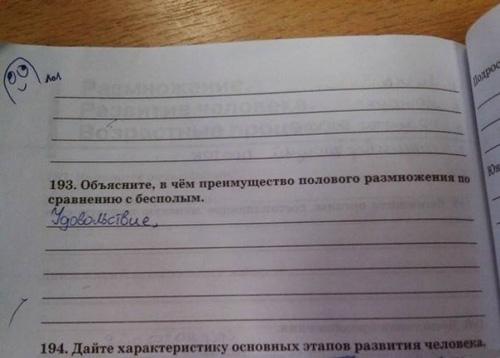 Лол
193. Объясните, в чём преимущество полового размножения по
сравнению с бесполым.
Удовольствие.
194. Дайте характеристику основных этапов развития человека.
Подрос
Юн